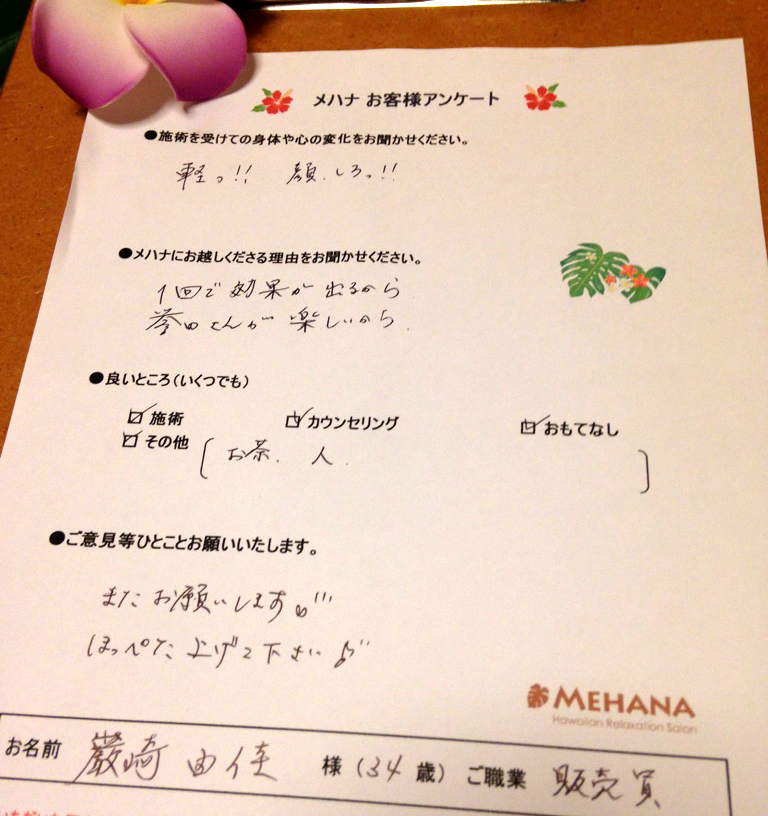 メハナ お客様アンケート
●施術を受けての身体や心の変化をお聞かせください。
軽っ!! 顔、しろっ!!
●メハナにお越しくださる理由をお聞かせください。
1回で効果が出るから
誉田さんが楽しいから.
●良いところ(いくつでも)
施術 カウンセリング おもてなし
その他 お茶、人.
●ご意見等ひとことお願いいたします。
またお願いします。
ほっぺた上げて下さい♪
MEHANA
Hawaiian Relaxation Salon
お名前 巌崎 由佳 様 (34歳) ご職業 販売員